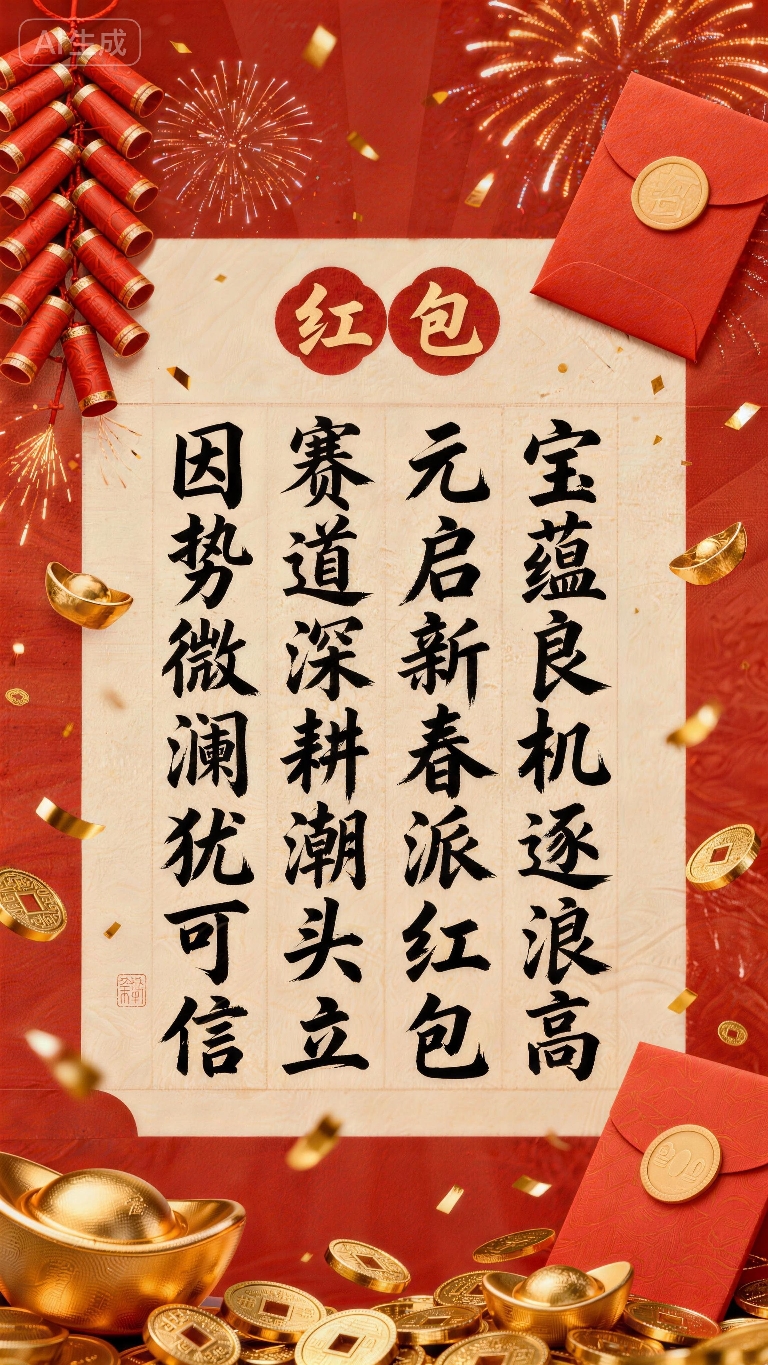 AI生成
红包
宝蕴良机逐浪高
元启新春派红包
赛道深耕潮头立
因势微澜犹可信